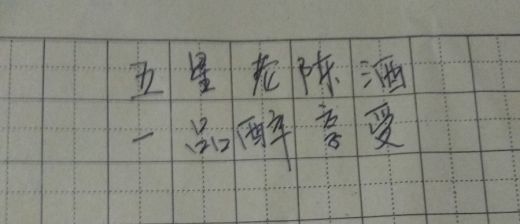 五星老陈酒
一品醉享受